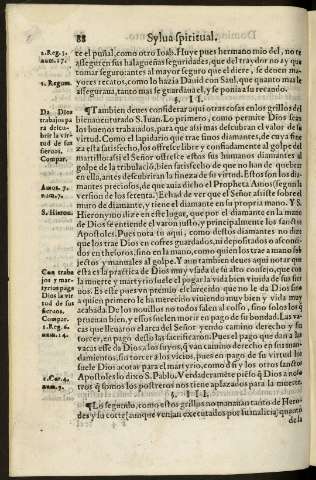 88
Sylua spiritual.
te el puñal, como otro Ioab. Huye pues hermano mio del, no te
assegures sus halagueñas seguridades, que del traydor no ay que
tomar seguro: antes al mayor seguro que el diere, se deuen ma-
yores recatos, como lo hazia Dauid con Saul, que quanto mas le
asseguraua, tanto mas se guardaua el, y se ponia a su recaudo.
§. II.
¶Tambien deues considerar aqui otras cosas en los grillos del
bienauenturado S. Iuan. Lo primero, como permite Dios sean
los buenos trabajados, para que assi mas descubran el valor de su
virtud. Como el lapidario que trae finos diamantes, de cuya fine
za esta satisfecho, los offresce libre y confiadamente al golpe del
martillo: assi el Señor offresce estos sus humanos diamantes al
golpe de la tribulacion, bien satisfecho de que no han de quebrar
en ella, antes descubriran la fineza de su virtud. Estos son los dia-
mantes preciosos, de que auia dicho el Propheta Amos (segun la
version de los setenta.) Echad de ver que el Señor assiste sobre el
muro de diamante, y tiene el diamante en su propria mano. Y S.
Hieronymo dize en este lugar, que por el diamante en la mano
de Dios se entiende el varon justo, y principalmente los sanctos
Apostoles. Pues nota tu aqui, como destos diamantes no dize
que los trae Dios en cofres guardados, ni depositados o ascondi-
dos en thesoros, sino en la mano, como quien los trae a mano sub
jectos y manuales al golpe. Y aun tambien deues aqui notar que
esta es la practica de Dios muy vsada de su alto consejo, que con
la muerte y martyrio suele el pagar la vida bien viuida de sus sier
uos. Es este premio primo y esclarecido que no le da Dios sino
a quien primero le ha merecido viuiendo muy bien y vida muy
acabada. De los nouillos no todos salen al cosso, sino solos los q̃
prueuan bien, y essos suelen morir en pago de su bondad. Las va-
cas que lleuaron el arca del Señor yendo camino derecho y sin
torcer, en pago desso las sacrificaron. Pues el pago que dan a las
vacas esse da Dios a los suyos, q̃ van camino derecho en sus man-
damientos, sin torcer a los vicios, pues en pago de su virtud los
suele Dios acotar para el martyrio, como d̃ si y los otros sanctos
Apostoles lo dixo S. Pablo. Verdaderamẽte piẽso q̃ Dios a noso
tros q̃ somos los postreros nos tiene aplazados para la muerte.
§. III.
¶Lo segundo, como estos grillos no manauan tanto de Hero-
des y su corte (aunque venian executados por su malicia) quanto
de la
2. Reg. 3.
num. 27.
1. Regum.
Da Dios
trabajos pa
ra descu-
brir la vir
tud de sus
sieruos.
Compar.
Amos. 7.
num. 7.
S. Hieron.
Con traba
jos y mar-
tyrios paga
Dios la vir
tud de sus
sieruos.
Compar.
1. Reg. 6.
num. 14.
1. Cor. 4.
num. 9.